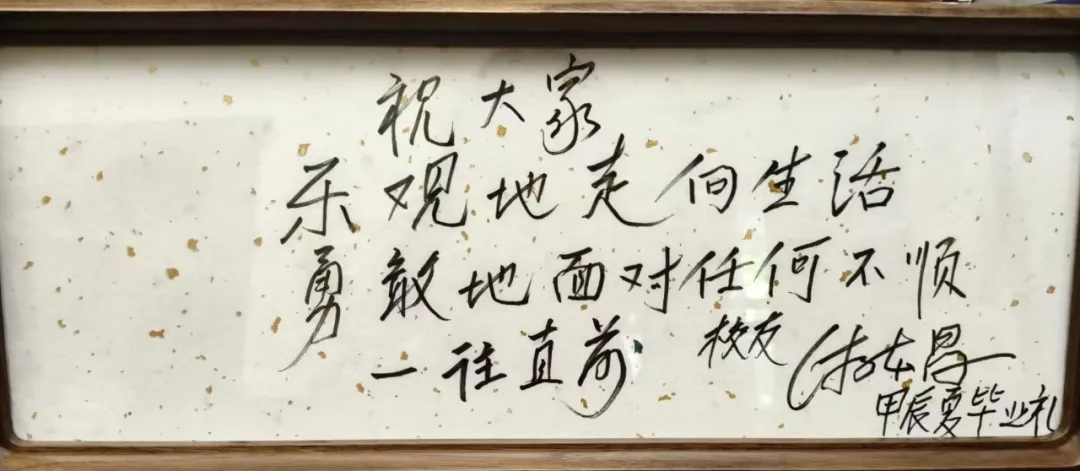 祝大家
乐观地走向生活
勇敢地面对任何不顺
一往直前
校友
甲辰夏毕业礼